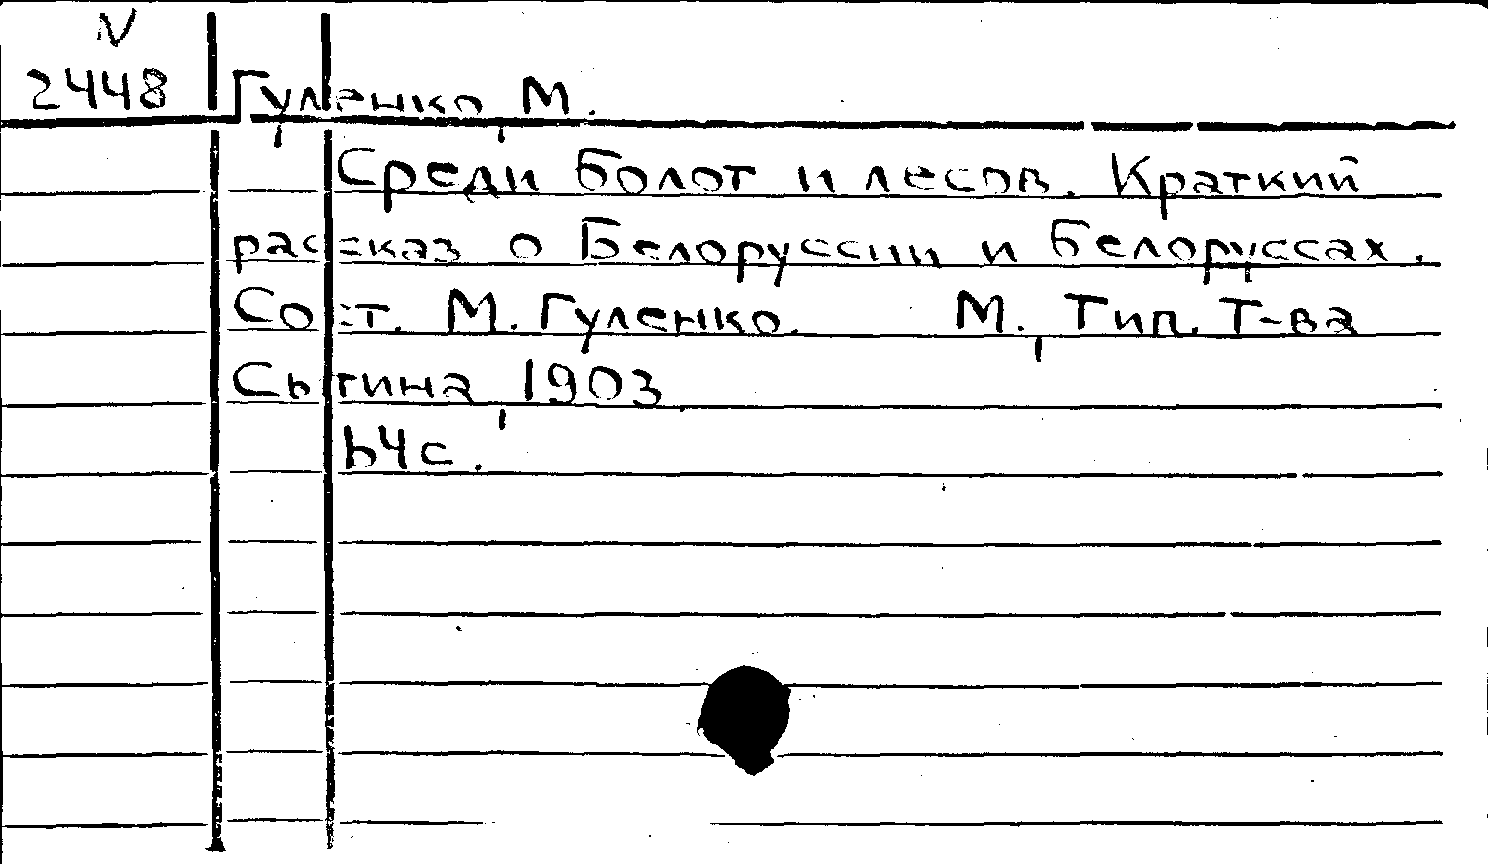 N
2448 Гуленко, М.
Среди болот и лесов. Краткий
рассказ о Белоруссии и Белоруссах.
Сост. М. Гуленко. М., Тип. Т-ва
Сытина, 1903
64 с.